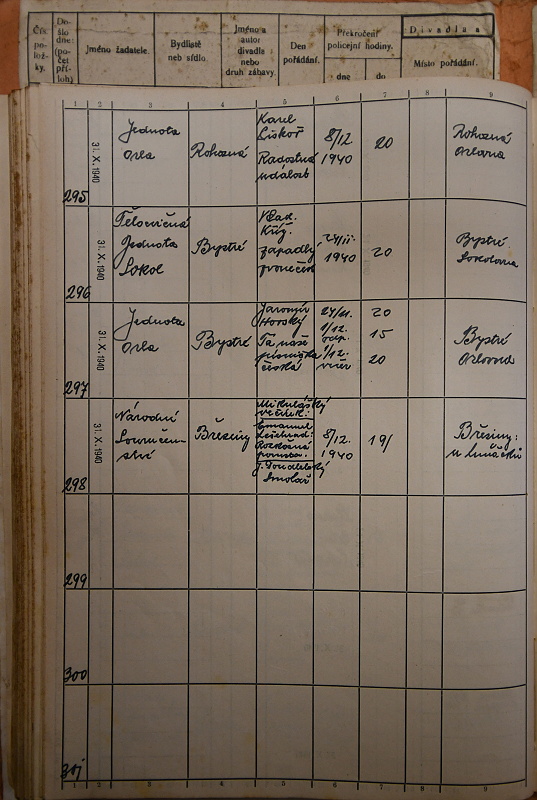 Čís. po- lož- ky.
Do- šlo dne: (po- čet pří- loh)
Jméno žadatele.
Bydliště neb sídlo.
Jméno a autor divadla nebo druh zábavy.
Den pořádání.
Překročení policejní hodiny.
dne
do
Divadla a
Místo pořádání.
1 2 3 4 5 6 7 8 9
295
31. X. 1940
Jednota
Orla
Rohozná
Karel
Radostná
událost
8/12
1940
20
Rohozná
Orlovna
296
31. X. 1940
Tělocvičná
Jednota
Sokol
Bystré
Vlad.
zapadlý
24/11.
1940
20
Bystré
Sokolovna
297
31. X. 1940
Jednota
Orla
Bystré
Jaromír
Horský
Ta naše
písnička
česká
24/11. 20
1/12. odp. 15
1/12. večer 20
Bystré
Orlovna
298
31. X. 1940
Národní
Souručen-
ství
Březiny
Mikulášský
večírek.
Emanuel
Rozkošná
Smolař
8/12.
1940
19/
Březiny:
299
300
301
1 2 3 4 5 6 7 8 9